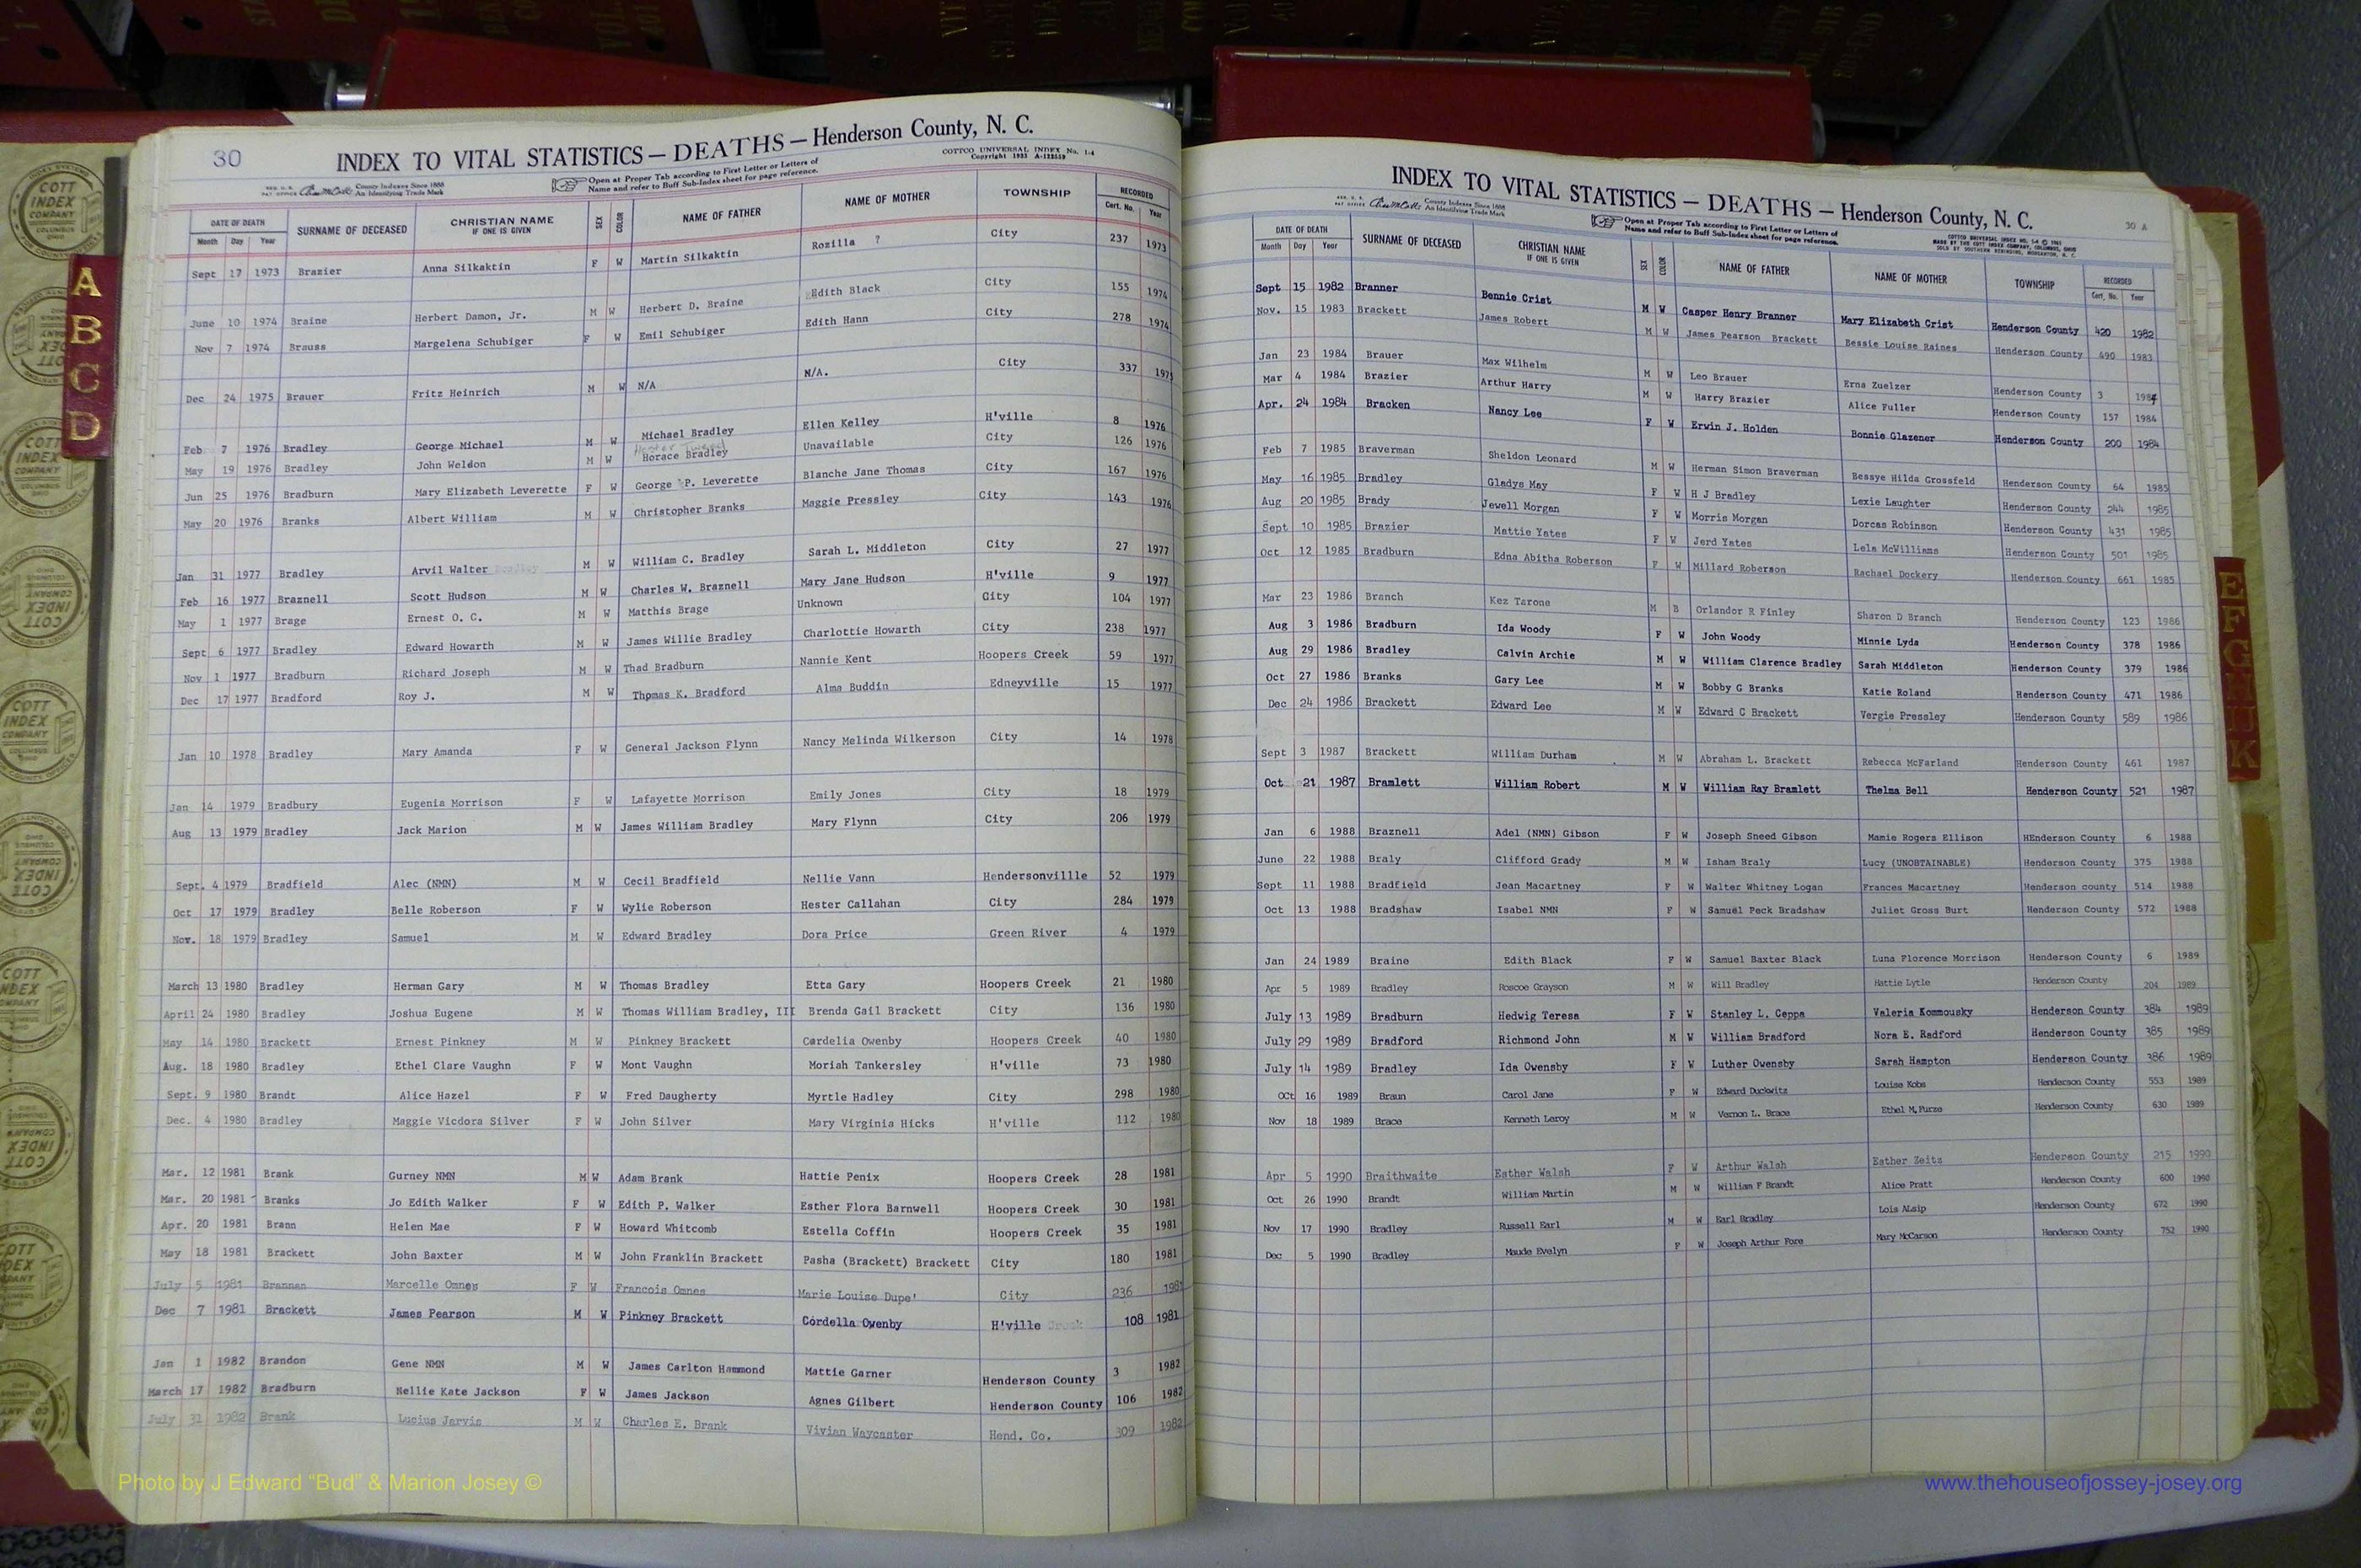 30
INDEX TO VITAL STATISTICS — DEATHS — Henderson County, N. C.
COTTCO UNIVERSAL INDEX No. 1-4
Copyright 1933 A-122559
County Indexes Since 1888
An Identifying Trade Mark
Open at Proper Tab according to First Letter or Letters of
Name and refer to Buff Sub-Index sheet for page reference.
DATE OF DEATH SURNAME OF DECEASED CHRISTIAN NAME IF ONE IS GIVEN SEX COLOR NAME OF FATHER NAME OF MOTHER TOWNSHIP RECORDED
Month Day Year Cert. No. Year
Sept 17 1973 Brazier Anna Silkaktin F W Martin Silkaktin Rozilla ? City 237 1973
June 10 1974 Braine Herbert Damon, Jr. M W Herbert D. Braine Edith Black City 155 1974
Nov 7 1974 Brauss Margelena Schubiger F W Emil Schubiger Edith Hann City 278 1974
Dec 24 1975 Brauer Fritz Heinrich M W N/A N/A. City 337 1975
Feb 7 1976 Bradley George Michael M W Michael Bradley Ellen Kelley H'ville 8 1976
May 19 1976 Bradley John Weldon M W Horace Bradley Unavailable City 126 1976
Jun 25 1976 Bradburn Mary Elizabeth Leverette F W George P. Leverette Blanche Jane Thomas City 167 1976
May 20 1976 Branks Albert William M W Christopher Branks Maggie Pressley City 143 1976
Jan 31 1977 Bradley Arvil Walter M W William C. Bradley Sarah L. Middleton City 27 1977
Feb 16 1977 Braznell Scott Hudson M W Charles W. Braznell Mary Jane Hudson H'ville 9 1977
May 1 1977 Brage Ernest O. C. M W Matthis Brage Unknown City 104 1977
Sept 6 1977 Bradley Edward Howarth M W James Willie Bradley Charlottie Howarth City 238 1977
Nov 1 1977 Bradburn Richard Joseph M W Thad Bradburn Nannie Kent Hoopers Creek 59 1977
Dec 17 1977 Bradford Roy J. M W Thomas K. Bradford Alma Buddin Edneyville 15 1977
Jan 10 1978 Bradley Mary Amanda F W General Jackson Flynn Nancy Melinda Wilkerson City 14 1978
Jan 14 1979 Bradbury Eugenia Morrison F W Lafayette Morrison Emily Jones City 18 1979
Aug 13 1979 Bradley Jack Marion M W James William Bradley Mary Flynn City 206 1979
Sept. 4 1979 Bradfield Alec (NMN) M W Cecil Bradfield Nellie Vann Hendersonvillle 52 1979
Oct 17 1979 Bradley Belle Roberson F W Wylie Roberson Hester Callahan City 284 1979
Nov. 18 1979 Bradley Samuel M W Edward Bradley Dora Price Green River 4 1979
March 13 1980 Bradley Herman Gary M W Thomas Bradley Etta Gary Hoopers Creek 21 1980
April 24 1980 Bradley Joshua Eugene M W Thomas William Bradley, III Brenda Gail Brackett City 136 1980
May 14 1980 Brackett Ernest Pinkney M W Pinkney Brackett Cordelia Owenby Hoopers Creek 40 1980
Aug. 18 1980 Bradley Ethel Clare Vaughn F W Mont Vaughn Moriah Tankersley H'ville 73 1980
Sept. 9 1980 Brandt Alice Hazel F W Fred Daugherty Myrtle Hadley City 298 1980
Dec. 4 1980 Bradley Maggie Vicdora Silver F W John Silver Mary Virginia Hicks H'ville 112 1980
Mar. 12 1981 Brank Gurney NMN M W Adam Brank Hattie Penix Hoopers Creek 28 1981
Mar. 20 1981 Branks Jo Edith Walker F W Edith P. Walker Esther Flora Barnwell Hoopers Creek 30 1981
Apr. 20 1981 Brann Helen Mae F W Howard Whitcomb Estella Coffin Hoopers Creek 35 1981
May 18 1981 Brackett John Baxter M W John Franklin Brackett Pasha (Brackett) Brackett City 180 1981
July 5 1981 Brannan Marcelle Omnes F W Francois Omnes Marie Louise Dupe' City 236 1981
Dec 7 1981 Brackett James Pearson M W Pinkney Brackett Cordella Owenby H'ville 108 1981
Jan 1 1982 Brandon Gene NMN M W James Carlton Hammond Mattie Garner Henderson County 3 1982
March 17 1982 Bradburn Nellie Kate Jackson F W James Jackson Agnes Gilbert Henderson County 106 1982
July 31 1982 Brank Lucius Jarvis M W Charles E. Brank Vivian Waycaster Hend. Co. 309 1982
30 A
INDEX TO VITAL STATISTICS — DEATHS — Henderson County, N. C.
County Indexes Since 1888
An Identifying Trade Mark
Open at Proper Tab according to First Letter or Letters of
Name and refer to Buff Sub-Index sheet for page reference.
DATE OF DEATH SURNAME OF DECEASED CHRISTIAN NAME IF ONE IS GIVEN SEX COLOR NAME OF FATHER NAME OF MOTHER TOWNSHIP RECORDED
Month Day Year Cert. No. Year
Sept 15 1982 Branner Bennie Crist M W Casper Henry Branner Mary Elizabeth Crist Henderson County 420 1982
Nov. 15 1983 Brackett James Robert M W James Pearson Brackett Bessie Louise Raines Henderson County 490 1983
Jan 23 1984 Brauer Max Wilhelm M W Leo Brauer Erna Zuelzer Henderson County 3 1984
Mar 4 1984 Brazier Arthur Harry M W Harry Brazier Alice Fuller Henderson County 157 1984
Apr. 24 1984 Bracken Nancy Lee F W Erwin J. Holden Bonnie Glazener Henderson County 200 1984
Feb 7 1985 Braverman Sheldon Leonard M W Herman Simon Braverman Bessye Hilda Grossfeld Henderson County 64 1985
May 16 1985 Bradley Gladys May F W H J Bradley Lexie Laughter Henderson County 244 1985
Aug 20 1985 Brady Jewell Morgan F W Morris Morgan Dorcas Robinson Henderson County 431 1985
Sept 10 1985 Brazier Mattie Yates F W Jerd Yates Lela McWilliams Henderson County 501 1985
Oct 12 1985 Bradburn Edna Abitha Roberson F W Millard Roberson Rachael Dockery Henderson County 661 1985
Mar 23 1986 Branch Kez Tarone M B Orlandor R Finley Sharon D Branch Henderson County 123 1986
Aug 3 1986 Bradburn Ida Woody F W John Woody Minnie Lyda Henderson County 378 1986
Aug 29 1986 Bradley Calvin Archie M W William Clarence Bradley Sarah Middleton Henderson County 379 1986
Oct 27 1986 Branks Gary Lee M W Bobby G Branks Katie Roland Henderson County 471 1986
Dec 24 1986 Brackett Edward Lee M W Edward C Brackett Vergie Pressley Henderson County 589 1986
Sept 3 1987 Brackett William Durham M W Abraham L. Brackett Rebecca McFarland Henderson County 461 1987
Oct 21 1987 Bramlett William Robert M W William Ray Bramlett Thelma Bell Henderson County 521 1987
Jan 6 1988 Braznell Adel (NMN) Gibson F W Joseph Sneed Gibson Mamie Rogers Ellison HEnderson County 6 1988
June 22 1988 Braly Clifford Grady M W Isham Braly Lucy (UNOBTAINABLE) Henderson County 375 1988
Sept 11 1988 Bradfield Jean Macartney F W Walter Whitney Logan Frances Macartney Henderson county 514 1988
Oct 13 1988 Bradshaw Isabel NMN F W Samuel Peck Bradshaw Juliet Gross Burt Henderson County 572 1988
Jan 24 1989 Braine Edith Black F W Samuel Baxter Black Luna Florence Morrison Henderson County 6 1989
Apr 5 1989 Bradley Roscoe Grayson M W Will Bradley Hattie Lytle Henderson County 204 1989
July 13 1989 Bradburn Hedwig Teresa F W Stanley L. Ceppa Valeria Kommousky Henderson County 384 1989
July 29 1989 Bradford Richmond John M W William Bradford Nora E. Radford Henderson County 385 1989
July 14 1989 Bradley Ida Owensby F W Luther Owensby Sarah Hampton Henderson County 386 1989
OCt 16 1989 Braun Carol Jane F W Edward Duckwitz Louise Kobs Henderson County 553 1989
Nov 18 1989 Brace Kenneth Leroy M W Vernon L. Brace Ethel M. Furze Henderson County 630 1989
Apr 5 1990 Braithwaite Esther Walsh F W Arthur Walsh Esther Zeitz Henderson County 215 1990
Oct 26 1990 Brandt William Martin M W William F Brandt Alice Pratt Henderson County 600 1990
Nov 17 1990 Bradley Russell Earl M W Earl Bradley Lois Alsip Henderson County 672 1990
Dec 5 1990 Bradley Maude Evelyn F W Joseph Arthur Fore Mary McCarson Henderson County 752 1990
A
B
C
D
E
F
G
H
IJ
K
COTT
INDEX
COMPANY
COLUMBUS
OHIO
Photo by J Edward "Bud" & Marion Josey ©
www.thehouseofjossey-josey.org